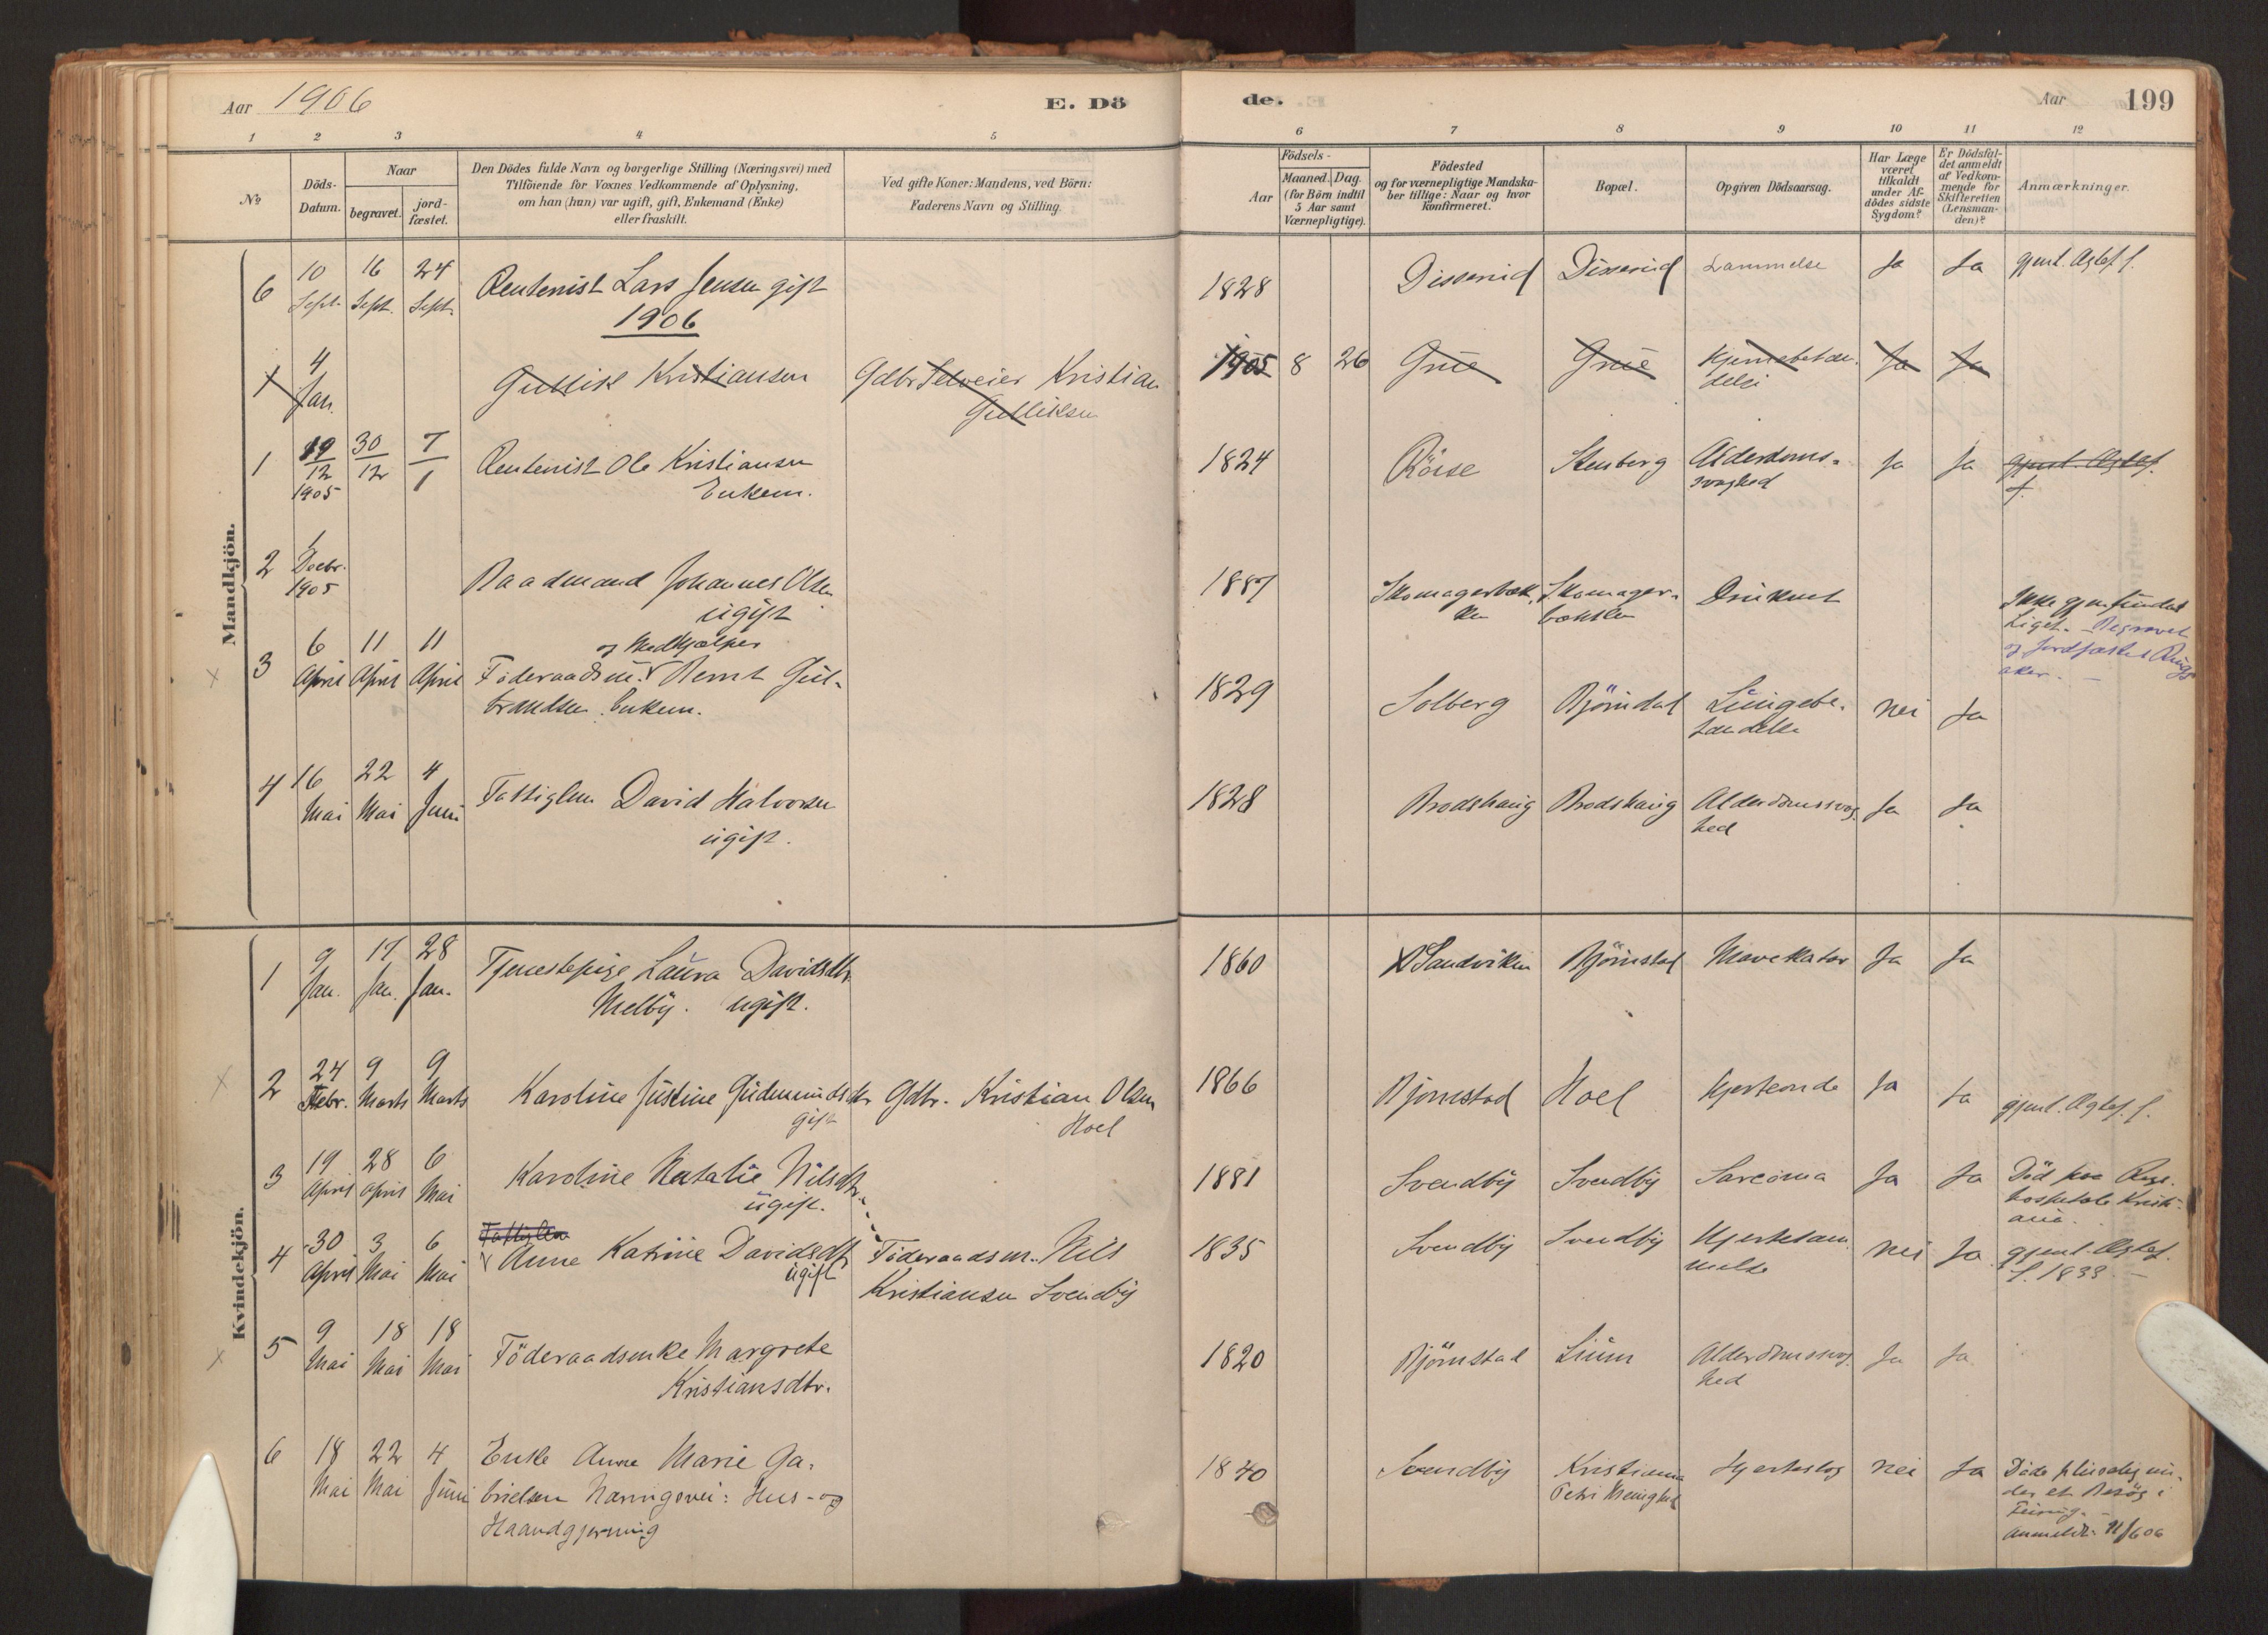 Aar 1906
E. Dö
de.
Aar
199
1 2 3 4 5 6 7 8 9 10 11 12
№
Döds-
Datum.
Naar
begravet.
jord-
fæstet.
Den Dödes fulde Navn og borgerlige Stilling (Næringsvei) med
Tilföiende for Voxnes Vedkommende af Oplysning,
om han (hun) var ugift, gift, Enkemand (Enke)
eller fraskilt.
Ved gifte Koner: Mandens, ved Börn:
Faderens Navn og Stilling.
Födsels-
Aar
Maaned. Dag.
(for Börn indtil
5 Aar samt
Værnepligtige).
Födested
og for værnepligtige Mandska-
ber tillige: Naar og hvor
konfirmeret.
Bopæl.
Opgiven Dödsaarsag.
Har Læge
været
tilkaldt
under Af-
dödes sidste
Sygdom?
Er Dödsfal-
det anmeldt
af Vedkom-
mende for
Skifteretten
(Lensman-
den)?
Anmærkninger.
Mandkjön.
6 10 Sept. 16 Sept. 24 Sept. Rentenist Lars Jensen gift 1828 Disserud Disserud Lammelse Ja Ja gjenl. Ægtef. f.
1906
1 4 Jan. Gullik Kristiansen Gdbr Selveier Kristian 1905 8 26 Grue Grue Ja Ja
Gulliksen
1 19/12 30/12 7/1 Rentenist Ole Kristiansen 1824 Röise Stenberg Alderdoms- Ja Ja gjenl. Ægtef.
1905 Enkem. svaghed f.
2 1 Decbr. 1905 Baadmand Johannes Olsen 1887 Skomagerbæk- Skomager- Druknet Ikke gjenfundet
ugift ken bækken Liget. - Begravet
og jordfæstet Rings-
aker. -
og Medhjælper
3 6 April 11 April 11 April Föderaadsm. Bernt Gul- 1829 Solberg Björndal Lungebe- nei Ja
brandsen. Enkem. tændelse
4 16 Mai 22 Mai 4 Juni Fattiglem David Halvorsen 1828 Brodshaug Brodshaug Alderdomssvag- Ja Ja
ugift. hed
Kvindekjön.
1 9 Jan. 17 Jan. 28 Jan. Tjenestepige Laura Davidsdtr 1860 Sandviken Björnstad Mavekatar Ja Ja
Melby. ugift.
2 24 Febr. 9 Marts 9 Marts Karoline Justine Gudmundsdtr Gdbr. Kristian Olsen 1866 Bjørnstad Hoel Hjerteonde Ja Ja gjenl. Ægtef. f.
gift Hoel
3 19 April 28 April 6 Mai Karoline Natalie Nilsdtr. 1881 Svendby Svendby Sarcoma Ja Ja Död paa Rigs-
ugift. hospitalet Kristi-
ania.
Fattiglem
4 30 April 3 Mai 6 Mai Anne Katrine Davidsdtr Föderaadsm. Nils 1835 Svendby Svendby Hjertelam- nei Ja gjenl. Ægtef.
ugift Kristiansen Svendby melse f. 1833 -
5 9 Mai 18 Mai 18 Mai Föderaadsenke Margrete 1820 Björnstad Lium Alderdomssvag- Ja Ja
Kristiansdtr. hed
6 18 Mai 22 Mai 4 Juni Enke Anne Marie Ga- 1840 Svendby Kristiania Hjerteslag nei Ja Döde pludselig un-
brielsen Næringsvei: Hus- og Petri Menighed der et Besög i
Haandgjerning Feiring. -
anmeldt. 11/6 06